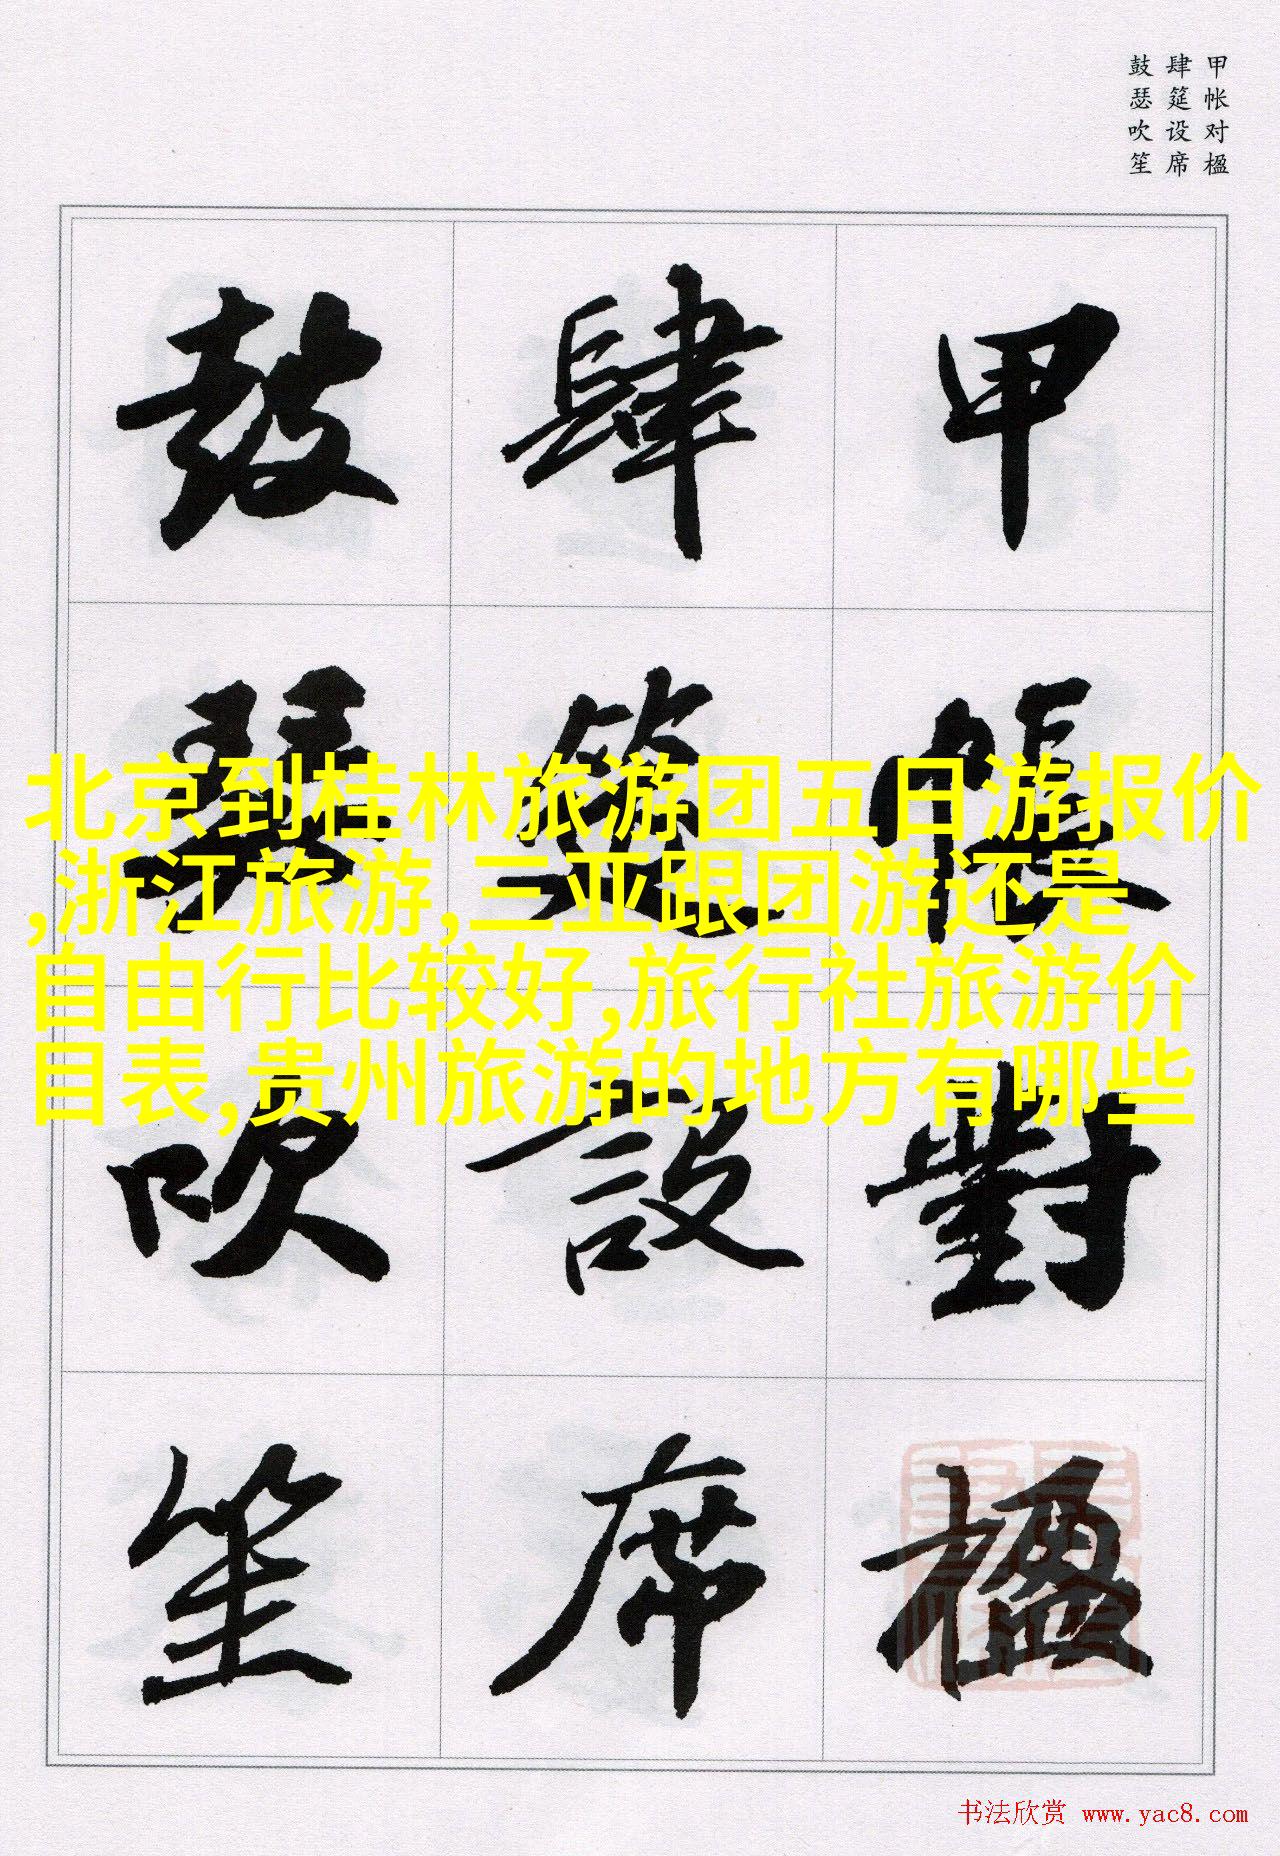 甲帐对楹
肆筵设席
鼓瑟吹笙
甲帳對楹
肆筵設席
鼓瑟吹笙
北京到桂林旅游团五日游报价
,浙江旅游,三亚跟团游还是
自由行比较好,旅行社旅游价
目表,贵州旅游的地方有哪些
书法欣赏 www.yac8.com